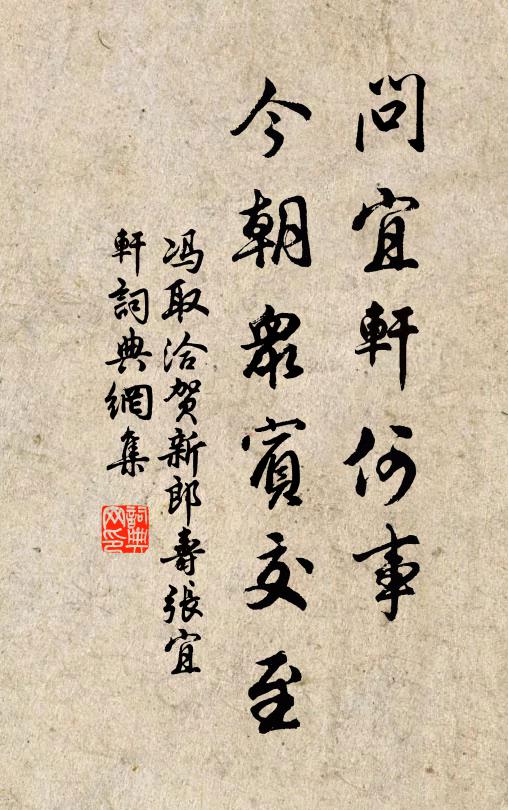 問宜軒何事
今朝衆賓交至
冯取洽贺新郎壽張宜
軒詞典網集
詞典
网印